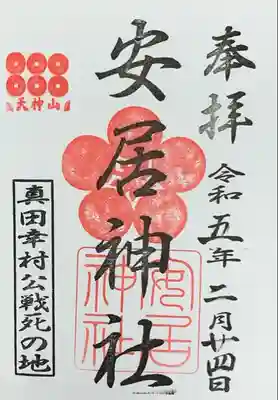 奉拝
令和五年二月廿四日
安居神社
安居神社
天神山
真田幸村公戦死の地